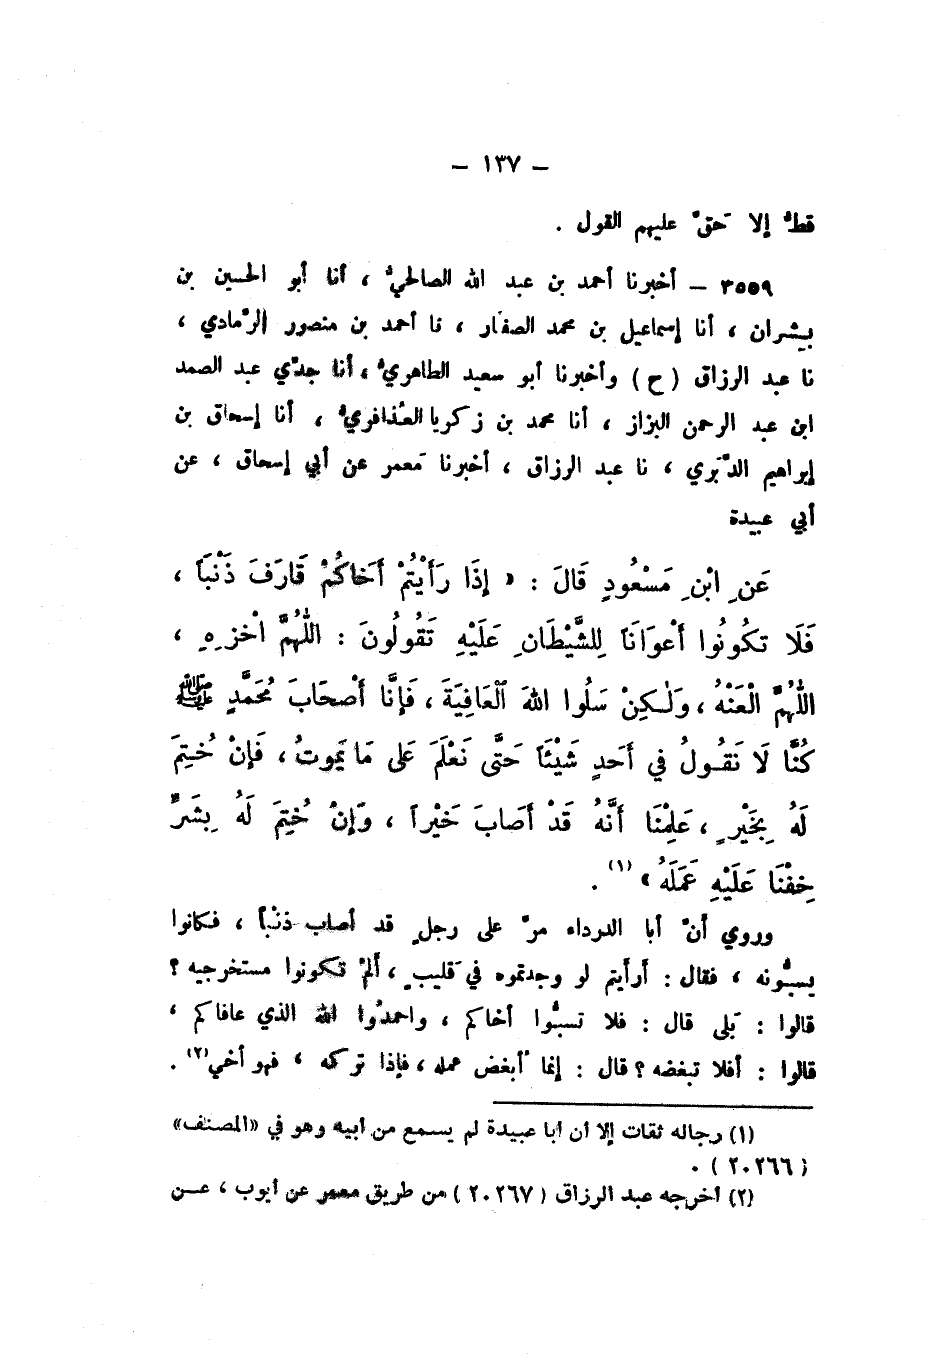 – ١٣٧ –
قطُّ إلا حَقَّ عليهم القول .
٣٥٥٩ – أخبرنا أحمد بن عبد الله الصالحيُّ ، أنا أبو الحسين بن
بيشران ، أنا إسماعيل بن محمد الصفّار ، نا أحمد بن منصور الرَّمادي ،
نا عبد الرزاق ( ح ) وأخبرنا أبو سعيد الطاهريُّ ، أنا جدّي عبد الصمد
ابن عبد الرحمن البزاز ، أنا محمد بن زكريا العُذافريُّ ، أنا إسحاق بن
إبراهيم الدَّبَري ، نا عبد الرزاق ، أخبرنا مَعمر عن أبي إسحاق ، عن
أبي عبيدة
عَنِ ابْنِ مَسْعُودٍ قَالَ : « إِذَا رَأَيْتُمْ أَخَاكُمْ قَارَفَ ذَنْبَاً ،
فَلَا تَكُونُوا أَعْوَانَاً لِلشَّيْطَانِ عَلَيْهِ تَقُولُونَ : اللَّهُمَّ اخْزِهِ ،
اللَّهُمَّ الْعَنْهُ ، وَلَـٰكِنْ سَلُوا اللهَ الْعَافِيَةَ ، فَإِنَّا أَصْحَابَ مُحَمَّدٍ ﷺ
كُنَّا لَا نَقُـولُ فِي أَحَدٍ شَيْئَاً حَتَّى نَعْلَمَ عَلَى مَا يَمُوتُ ، فَإِنْ خُتِمَ
لَهُ بِخَيْرٍ ، عَلِمْنَا أَنَّهُ قَدْ أَصَابَ خَيْراً ، وَإِنْ خُتِمَ لَهُ بِشَرٍّ
خِفْنَا عَلَيْهِ عَمَلَهُ » (١) .
وروي أنَّ أبا الدرداء مرَّ على رجلٍ قد أصاب ذنْباً ، فكانوا
يسبُّونه ، فقال : أرأيتم لو وجدتموه في قَليبٍ ، ألمْ تكونوا مستخرجيه ؟
قالوا : بَلى قال : فلا تسبُّوا أخاكم ، واحمدُوا الله الذي عافاكم ،
قالوا : أفلا تبغضه ؟ قال : إنما أُبغض عمله ، فإذا تركه ، فهو أخي(٢) .
(١) رجاله ثقات إلا أن أبا عبيدة لم يسمع من أبيه وهو في «المصنف»
( ٢٠٢٦٦ ) .
(٢) أخرجه عبد الرزاق ( ٢٠٢٦٧ ) من طريق معمر عن أيوب ، عـن